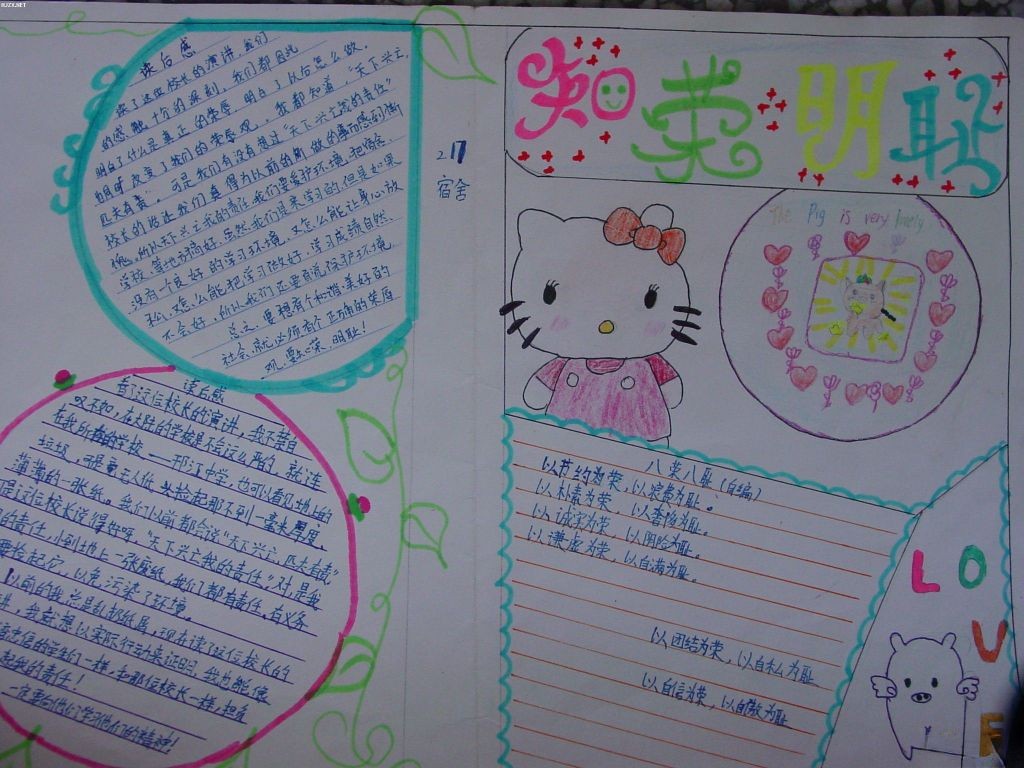 读后感
读了这位校长的演讲,我们
的感触十分的深刻,我们都因此
明白了什么是真正的荣辱,明白了以后怎么做,
改变了我们的荣辱观。我都知道“天下兴亡,
匹夫有责”。可是我们有没有想过“天下兴亡我的责任”
校长的演讲让我们真得为以前的所做的事而感到惭
愧,所以天下兴亡我的责任,我们要爱护环境,把宿舍、
学校等地方搞好,虽然我们是来学习的,但是如果
没有一个良好的学习环境,又怎么能让身心放
松,又怎么能把学习做好,学习成绩自然
不会好,所以我们还要首先保护环境。
总之,要想有个和谐、美好的
社会,就必须有个正确的荣辱
观,要知荣,明耻!
读后感
看了这位校长的演讲,我不禁自
叹不如,在大陆的学校是不会这么严的,就连
在我所在的学校——邗江中学,也可以看见地上的
垃圾,可是重无人低头捡起那不到一毫米厚度、
薄薄的一张纸。我们以前都会说“天下兴亡,匹夫有责”
是这位校长说得好呀,“天下兴亡我的责任”对,是我
的责任,小到地上一张废纸,我们都有责任,有义务
要捡起它,以免污染了环境。
以前的我总是乱扔纸屑,现在读了这位校长的
我就想以实际行动来证明,我也能像
的学生们一样,和那位校长一样,担负
起我的责任!
一定要向他们学习他们的精神!
217
宿舍
知荣明耻
The Pig is very lively
八荣八耻(自编)
以节约为荣,以浪费为耻。
以朴素为荣,以奢侈为耻。
以诚实为荣,以阴险为耻。
以谦虚为荣,以自满为耻。
以团结为荣,以自私为耻
以自信为荣,以自傲为耻
LOVE